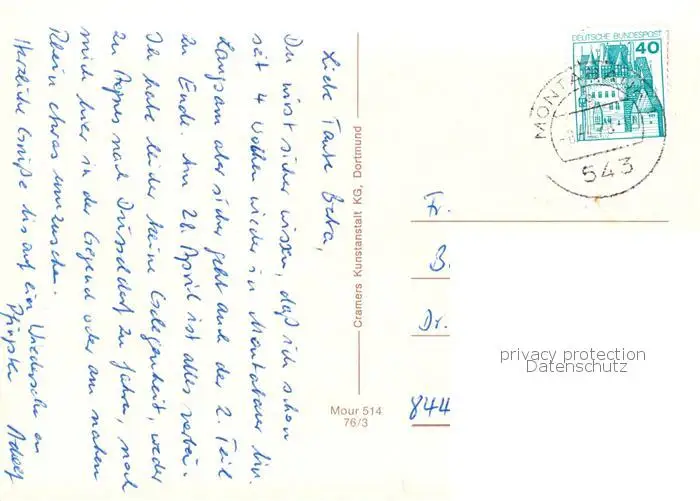 Liebe Tante Beka,
Du wirst sicher wissen, daß ich schon
seit 4 Wochen wieder in Montabaur bin.
Langsam aber sicher geht auch der 2. Teil
zu Ende. Am 28. April ist alles vorbei.
Ich habe leider keine Gelegenheit, weder
zu Papas nach Düsseldorf zu fahren, noch
mich hier in der Gegend oder am nahen
Rhein etwas umzusehen.
Herzliche Grüße bis auf ein Wiedersehen an
Pfingsten
Cramers Kunstanstalt KG, Dortmund
Mour 514
76/3
DEUTSCHE BUNDESPOST
40
MONTABAUR
543
Fr.
B.
Dr.
844
privacy protection
Datenschutz